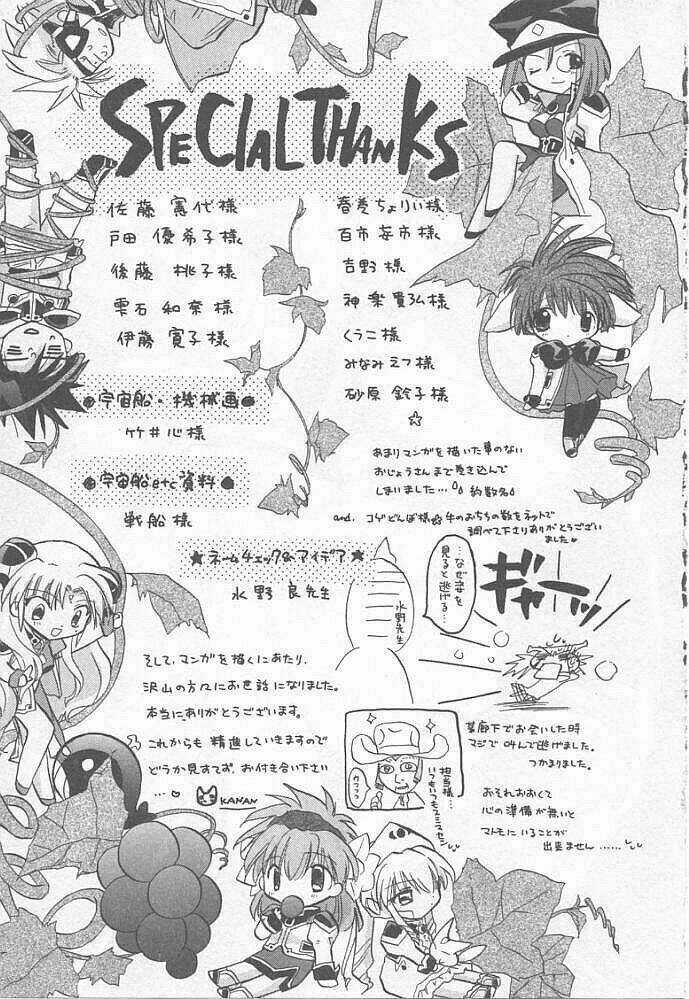 SPECIAL THANKS
佐藤 憲代様
戸田 優希子様
後藤 桃子様
雫石 和奈様
伊藤 寛子様
●宇宙船・機械画●
竹井心様
●宇宙船etc資料●
戦船様
春巻ちょりぃ様
百市安市様
吉野様
神楽貴弘様
くうこ様
みなみえつ様
砂原 鈴子様
☆
あまりマンガを描いた事のない
おじょうさんまで巻き込んで
しまいました…
約数名
and. コゲどんぼ様☆牛のおちちの数をネットで
調べて下さりありがとうござい
ました
★ネームチェック&アイデア★
水野 良先生
…なぜ妾を
見ると逃げる…
水野先生
ギャーッ
そして、マンガを描くにあたり、
沢山の方々にお世話になりました。
本当に、ありがとうございます。
これからも精進していきますので
どうか見すてず、お付き合い下さい
…♡
KANAN
ウフフフ
担当様…
いつもいつもスミマセン
某廊下でお会いした時
マジで叫んで逃げました。
つかまりました。
おそれおおくて
心の準備が無いと
マトモにいることが
出来ません……